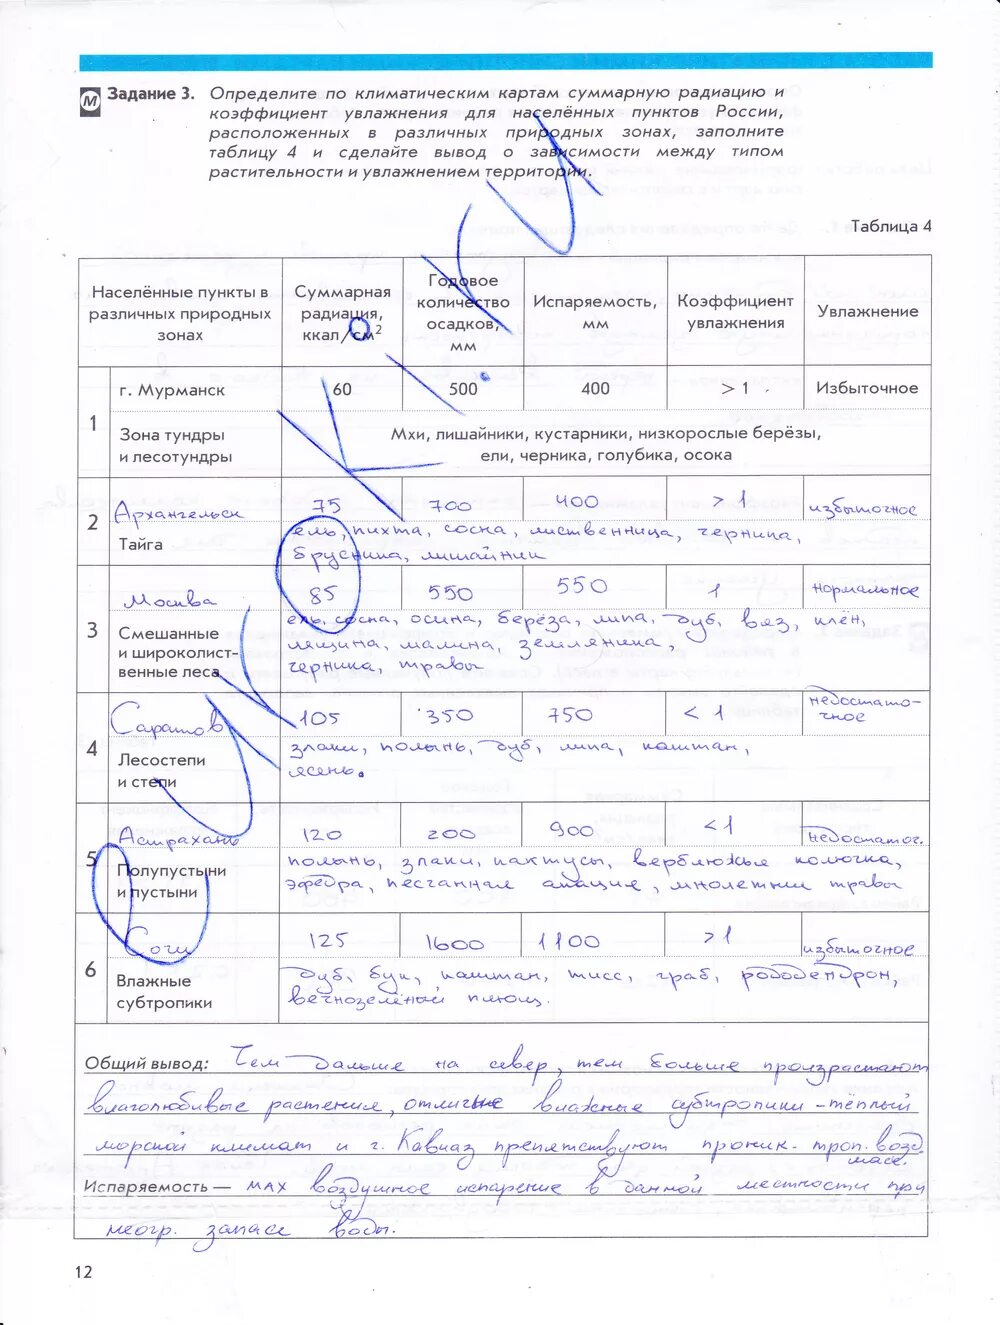 М Задание 3. Определите по климатическим картам суммарную радиацию и
коэффициент увлажнения для населённых пунктов России,
расположенных в различных природных зонах, заполните
таблицу 4 и сделайте вывод о зависимости между типом
растительности и увлажнением территории.
Таблица 4
Населённые пункты в различных природных зонах
Суммарная радиация, ккал/см²
Годовое количество осадков, мм
Испаряемость, мм
Коэффициент увлажнения
Увлажнение
1
г. Мурманск 60 500 400 > 1 Избыточное
Зона тундры
и лесотундры
Мхи, лишайники, кустарники, низкорослые берёзы,
ели, черника, голубика, осока
2
Архангельск 75 700 400 > 1 избыточное
Тайга
ель, пихта, сосна, лиственница, черника,
брусника, лишайник
3
Москва 85 550 550 1 нормальное
Смешанные
и широколист-
венные леса
ель, сосна, осина, берёза, липа, дуб, вяз, клён,
лещина, малина, земляника,
черника, травы
4
Саратов 105 350 750 < 1 недостато-
чное
Лесостепи
и степи
злаки, полынь, дуб, липа, каштан,
ясень.
5
Астрахань 120 200 900 <1 недостаточ.
Полупустыни
и пустыни
полынь, злаки, кактусы, верблюжья колючка,
эфедра, песчанная акация, мнолетнии травы
6
Сочи 125 1600 1100 >1 избыточное
Влажные
субтропики
дуб, бук, каштан, тисс, граб, рододендрон,
вечнозелёный плющ.
Общий вывод: Чем дальше на север, тем больше произрастают
влаголюбивые растения, отличные влажные субтропики - тёплый
морской климат и г. Кавказ препятствуют проник. троп. возд.
масс.
Испаряемость — мах воздушное испарение в данной местности при
неогр. запасе воды.
12